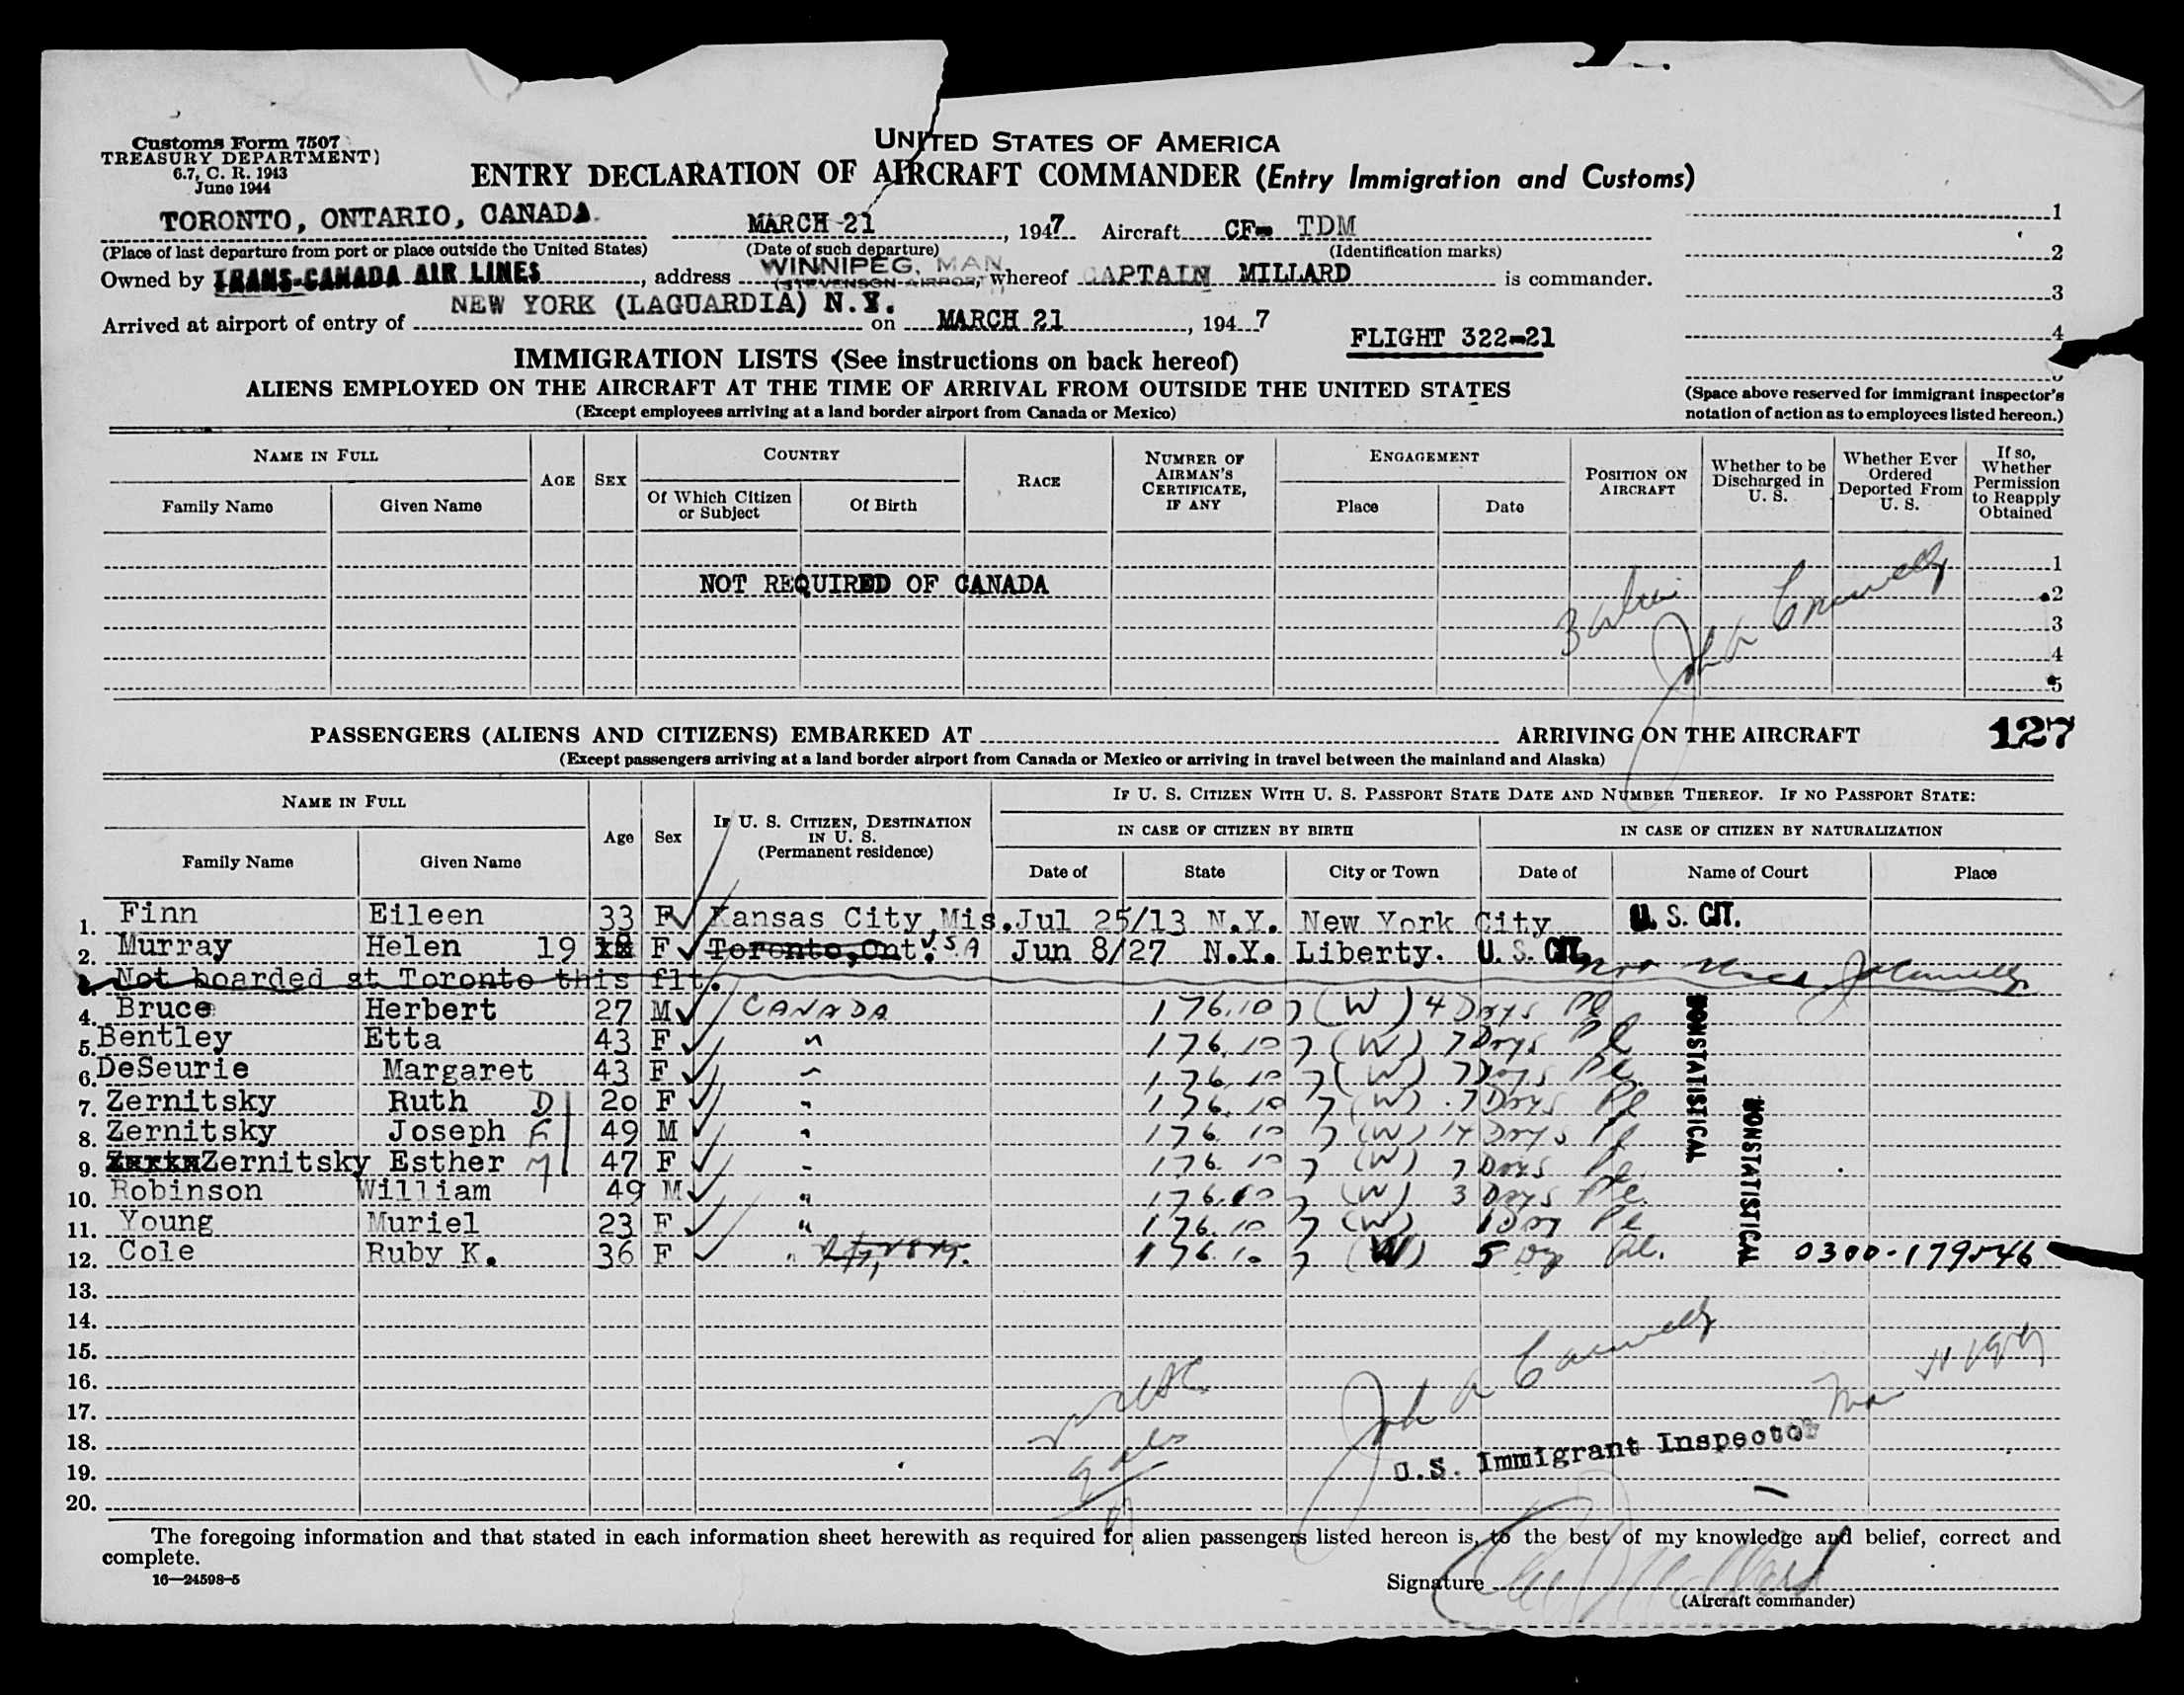 Customs Form 7507
TREASURY DEPARTMENT)
6.7, C. R. 1943
June 1944
UNITED STATES OF AMERICA
ENTRY DECLARATION OF AIRCRAFT COMMANDER (Entry Immigration and Customs)
TORONTO, ONTARIO, CANADA. MARCH 21, 1947 Aircraft CF- TDM 1
(Place of last departure from port or place outside the United States) (Date of such departure) (Identification marks) 2
Owned by TRANS-CANADA AIR LINES, address WINNIPEG, MAN (STEVENSON AIRPORT), whereof CAPTAIN MILLARD is commander. 3
Arrived at airport of entry of NEW YORK (LAGUARDIA) N.Y. on MARCH 21, 1947 4
FLIGHT 322-21
IMMIGRATION LISTS (See instructions on back hereof)
ALIENS EMPLOYED ON THE AIRCRAFT AT THE TIME OF ARRIVAL FROM OUTSIDE THE UNITED STATES
(Except employees arriving at a land border airport from Canada or Mexico)
(Space above reserved for immigrant inspector's notation of action as to employees listed hereon.)
NAME IN FULL AGE SEX COUNTRY RACE NUMBER OF AIRMAN'S CERTIFICATE, IF ANY ENGAGEMENT POSITION ON AIRCRAFT Whether to be Discharged in U. S. Whether Ever Ordered Deported From U. S. If so, Whether Permission to Reapply Obtained
Family Name Given Name Of Which Citizen or Subject Of Birth Place Date
1
NOT REQUIRED OF CANADA 2
3
4
5
PASSENGERS (ALIENS AND CITIZENS) EMBARKED AT ARRIVING ON THE AIRCRAFT 127
(Except passengers arriving at a land border airport from Canada or Mexico or arriving in travel between the mainland and Alaska)
NAME IN FULL Age Sex IF U. S. CITIZEN, DESTINATION IN U. S. (Permanent residence) IF U. S. CITIZEN WITH U. S. PASSPORT STATE DATE AND NUMBER THEREOF. IF NO PASSPORT STATE:
IN CASE OF CITIZEN BY BIRTH IN CASE OF CITIZEN BY NATURALIZATION
Family Name Given Name Date of State City or Town Date of Name of Court Place
1. Finn Eileen 33 F Kansas City,Mis. Jul 25/13 N.Y. New York City U.S. CIT.
2. Murray Helen 19 F Toronto,Ont. U.S.A Jun 8/27 N.Y. Liberty. U.S. CIT.
Not boarded at Toronto this flt. Not Used
4. Bruce Herbert 27 M CANADA 176.107 (W) 4 Days Pl
5. Bentley Etta 43 F " 176.107 (W) 7 Days Pl
6. DeSeurie Margaret 43 F " 176.107 (W) 7 Days Pl.
7. Zernitsky Ruth D 20 F " 176.107 (W) 7 Days Pl
8. Zernitsky Joseph F 49 M " 176.107 (W) 14 Days Pl
9. Zernitsky Esther M 47 F " 176.107 (W) 7 Days Pl.
10. Robinson William 49 M " 176.107 (W) 3 Days Pl.
11. Young Muriel 23 F " 176.107 (W) 1 Day Pl
12. Cole Ruby K. 36 F " 176.107 (W) 5 Dy Pl. 0300-179546
NONSTATISTICAL
NONSTATISTICAL
13.
14.
15.
16.
17.
18.
19.
20.
2 USC
9 als
John A
U.S. Immigrant Inspector
The foregoing information and that stated in each information sheet herewith as required for alien passengers listed hereon is, to the best of my knowledge and belief, correct and
complete.
16—24598-5
Signature
(Aircraft commander)